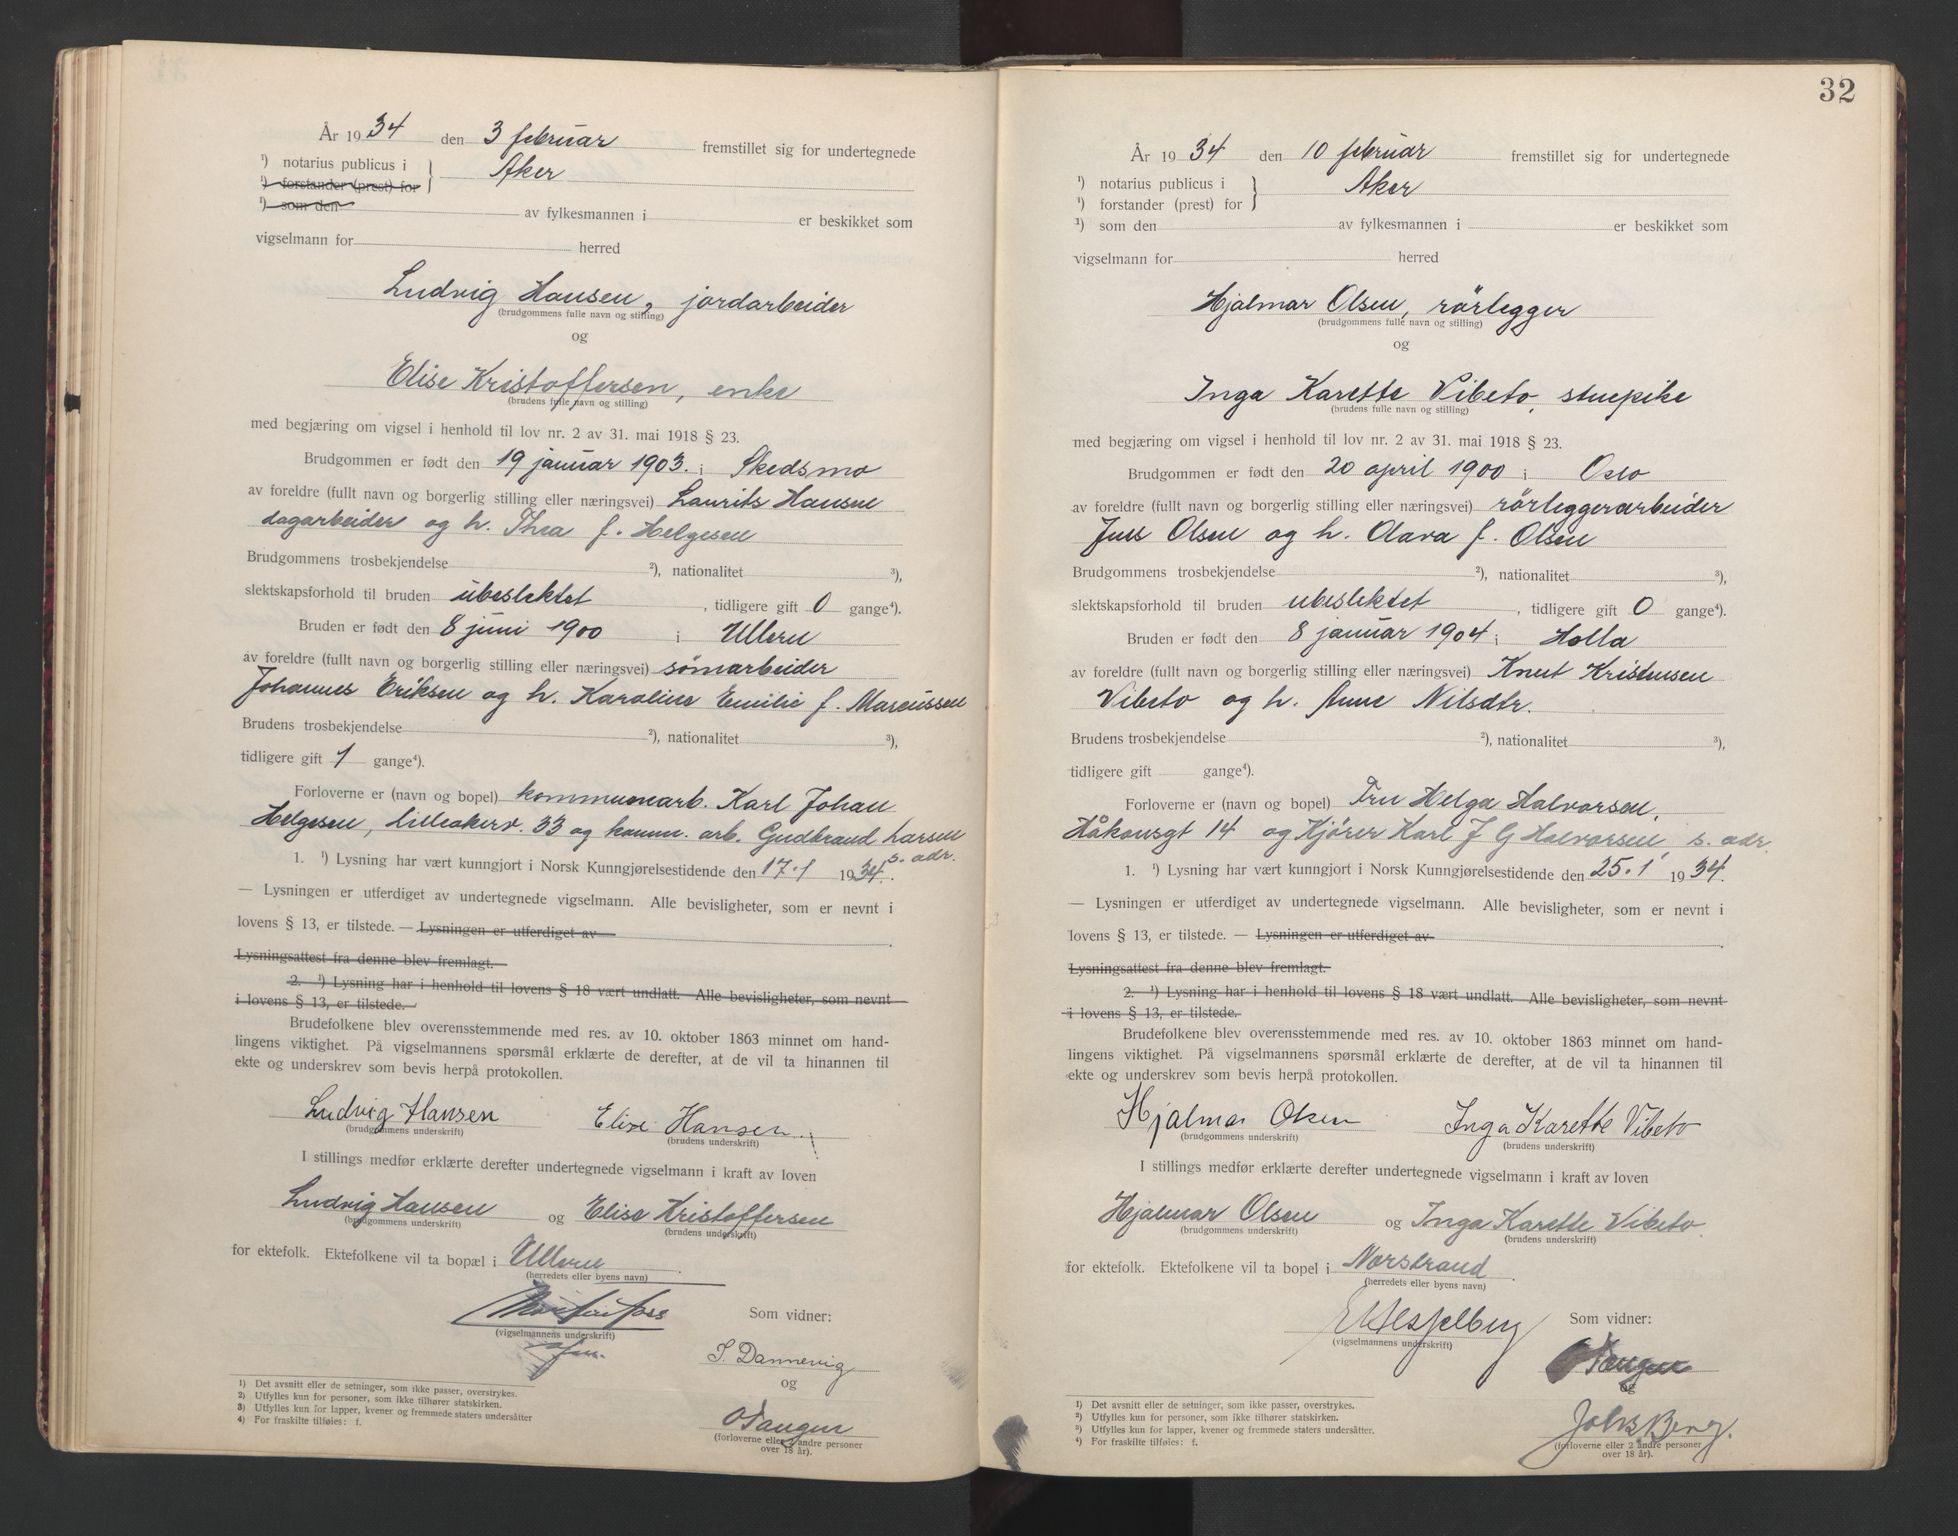 År 1934 den 3 februar fremstillet sig for undertegnede
¹) notarius publicus i } Aker
¹) forstander (prest) for
¹) som den av fylkesmannen i er beskikket som
vigselmann for herred
Ludvig Hansen, jordarbeider
(brudgommens fulle navn og stilling)
og
Elise Kristoffersen, enke
(brudens fulle navn og stilling)
med begjæring om vigsel i henhold til lov nr. 2 av 31. mai 1918 § 23.
Brudgommen er født den 19 januar 1903. i Skedsmo
av foreldre (fullt navn og borgerlig stilling eller næringsvei) Laurits Hansen
dagarbeider og h. Thea f. Helgesen
Brudgommens trosbekjendelse ²), nationalitet ³),
slektskapsforhold til bruden ubeslektet, tidligere gift 0 gange⁴).
Bruden er født den 8 juni 1900 i Ullern
av foreldre (fullt navn og borgerlig stilling eller næringsvei) sømarbeider
Johannes Eriksen og h. Karoline Emilie f. Marcussen
Brudens trosbekjendelse ²), nationalitet ³),
tidligere gift 1 gange⁴).
Forloverne er (navn og bopel) kommunearb. Karl Johan
Helgesen, Lilleakerv. 33 og komm. arb. Gudbrand Larsen
s. adr.
1. ¹) Lysning har vært kunngjort i Norsk Kunngjørelsestidende den 17.1 1934.
— Lysningen er utferdiget av undertegnede vigselmann. Alle bevisligheter, som er nevnt i
lovens § 13, er tilstede. — Lysningen er utferdiget av
Lysningsattest fra denne blev fremlagt.
2. ¹) Lysning har i henhold til lovens § 18 vært undlatt. Alle bevisligheter, som nevnt
i lovens § 13, er tilstede.
Brudefolkene blev overensstemmende med res. av 10. oktober 1863 minnet om hand-
lingens viktighet. På vigselmannens spørsmål erklærte de derefter, at de vil ta hinannen til
ekte og underskrev som bevis herpå protokollen.
Ludvig Hansen Elise Hansen
(brudgommens underskrift) (brudens underskrift)
I stillings medfør erklærte derefter undertegnede vigselmann i kraft av loven
Ludvig Hansen og Elise Kristoffersen
(brudgommens underskrift) (brudens underskrift)
for ektefolk. Ektefolkene vil ta bopæl i Ullern.
(herredets eller byens navn)
Som vidner:
(vigselmannens underskrift)
S. Dannevig
og
O Tangen
(forloverne eller 2 andre personer
over 18 år).
¹) Det avsnitt eller de setninger, som ikke passer, overstrykes.
²) Utfylles kun for personer, som ikke tilhører statskirken.
³) Utfylles kun for lapper, kvener og fremmede staters undersåtter
⁴) For fraskilte tilføies: f.
32
År 1934 den 10 februar fremstillet sig for undertegnede
¹) notarius publicus i } Aker
¹) forstander (prest) for
¹) som den av fylkesmannen i er beskikket som
vigselmann for herred
Hjalmar Olsen, rørlegger
(brudgommens fulle navn og stilling)
og
Inga Karette Vibeto, stuepike
(brudens fulle navn og stilling)
med begjæring om vigsel i henhold til lov nr. 2 av 31. mai 1918 § 23.
Brudgommen er født den 20 april 1900 i Oslo
av foreldre (fullt navn og borgerlig stilling eller næringsvei) rørleggerarbeider
Jens Olsen og h. Clara f. Olsen
Brudgommens trosbekjendelse ²), nationalitet ³),
slektskapsforhold til bruden ubeslektet, tidligere gift 0 gange⁴).
Bruden er født den 8 januar 1904 i Holla
av foreldre (fullt navn og borgerlig stilling eller næringsvei) Knut Kristensen
Vibeto og h. Anne Nilsdtr.
Brudens trosbekjendelse ²), nationalitet ³),
tidligere gift gange⁴).
Forloverne er (navn og bopel) Fru Helga Halvorsen,
Håkonsgt 14 og Kjører Karl J G Halvorsen, s. adr.
1. ¹) Lysning har vært kunngjort i Norsk Kunngjørelsestidende den 25.1 1934.
— Lysningen er utferdiget av undertegnede vigselmann. Alle bevisligheter, som er nevnt i
lovens § 13, er tilstede. — Lysningen er utferdiget av
Lysningsattest fra denne blev fremlagt.
2. ¹) Lysning har i henhold til lovens § 18 vært undlatt. Alle bevisligheter, som nevnt
i lovens § 13, er tilstede.
Brudefolkene blev overensstemmende med res. av 10. oktober 1863 minnet om hand-
lingens viktighet. På vigselmannens spørsmål erklærte de derefter, at de vil ta hinannen til
ekte og underskrev som bevis herpå protokollen.
Hjalmar Olsen Inga Karette Vibeto
(brudgommens underskrift) (brudens underskrift)
I stillings medfør erklærte derefter undertegnede vigselmann i kraft av loven
Hjalmar Olsen og Inga Karette Vibeto.
(brudgommens underskrift) (brudens underskrift)
for ektefolk. Ektefolkene vil ta bopel i Norstrand.
(herredets eller byens navn)
Som vidner:
(vigselmannens underskrift)
O Tangen
og
Johs. Berg.
(forloverne eller 2 andre personer
over 18 år).
¹) Det avsnitt eller de setninger, som ikke passer, overstrykes.
²) Utfylles kun for personer, som ikke tilhører statskirken.
³) Utfylles kun for lapper, kvener og fremmede staters undersåtter.
⁴) For fraskilte tilføies: f.